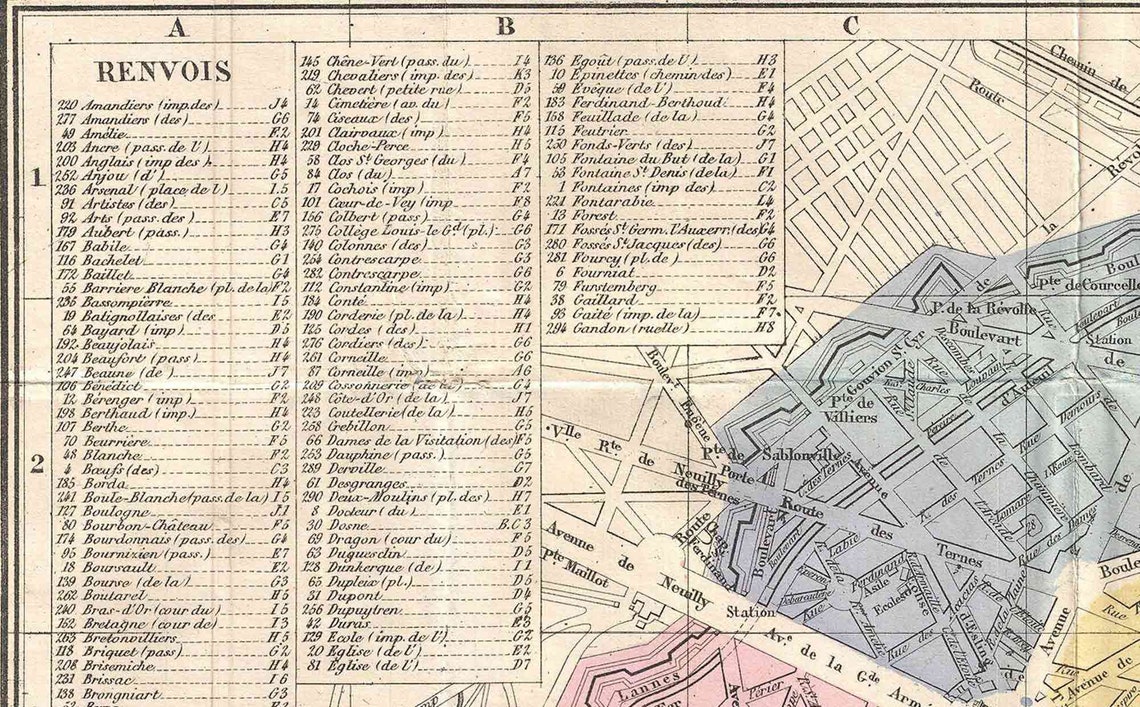 A
B
C
1
2
RENVOIS
220 Amandiers (imp. des) J4
277 Amandiers (des) G6
49 Amélie E2
203 Ancre (pass. de l') H4
200 Anglais (imp des) H4
252 Anjou (d') G5
236 Arsenal (place de l') I.5
91 Artistes (des) C5
92 Arts (pass. des) E7
179 Aubert (pass.) H3
167 Babile G4
116 Bachelet G1
172 Baillet G4
55 Barrière Blanche (pl. de la) F2
235 Bassompierre I5
19 Batignollaises (des E2
64 Bayard (imp) D5
192 Beaujolais H4
204 Beaufort (pass) H4
247 Beaune (de) J7
106 Bénédict G2
12 Bérenger (imp) F2
198 Berthaud (imp.) H4
107 Berthe G2
70 Beurrière F5
48 Blanche F2
4 Bœufs (des) C3
185 Borda H4
241 Boule-Blanche (pass. de la) I5
127 Boulogne J1
80 Bourbon-Château F5
174 Bourdonnais (pass. des) G4
95 Bournizien (pass.) E7
18 Boursault E2
139 Bourse (de la) G3
262 Boutarel H5
240 Bras-d'Or (cour du) I5
152 Bretagne (cour de) I3
263 Bretonvilliers H5
118 Briquet (pass) G2
208 Brisemiche H4
231 Brissac I6
138 Brongniart G3
145 Chêne-Vert (pass. du) I4
219 Chevaliers (imp. des) K3
62 Chevert (petite rue) D5
14 Cimetière (av. du) F2
74 Ciseaux (des) F5
201 Clairvaux (imp) H4
229 Cloche-Perce H5
58 Clos St Georges (du) F4
84 Clos (du) A7
17 Cochois (imp) F2
101 Cœur-de-Vey (imp F8
156 Colbert (pass) G4
275 Collège Louis-le Gd (pl.) G6
140 Colonnes (des) G3
254 Contrescarpe G3
282 Contrescarpe G6
112 Constantine (imp) G2
184 Conté H4
190 Corderie (pl. de la) H4
125 Cordes (des) H1
276 Cordiers (des) G6
261 Corneille G6
87 Corneille (imp) A6
209 Cossonnerie G4
248 Côte-d'Or (de la) J7
223 Coutellerie (de la) H5
258 Crébillon G5
66 Dames de la Visitation (des) F5
253 Dauphine (pass.) G5
289 Derville G7
61 Desgranges D2
290 Deux-Moulins (pl. des) H7
8 Docteur (du) E1
30 Dosne B.C3
69 Dragon (cour du) F5
63 Duguesclin D5
128 Dunkerque (de) I1
65 Dupleix (pl.) D5
31 Dupont D4
256 Dupuytren G5
42 Duras E3
129 Ecole (imp. de l') G2
20 Eglise (de l') E2
81 Eglise (de l') D7
136 Egout (pass. de l') H3
10 Epinettes (chemin des) E1
59 Evêque (de l') F4
183 Ferdinand-Berthoud H4
158 Feuillade (de la) G4
115 Feutrier G2
250 Fonds-Verts (des) J7
105 Fontaine du But (de la) G1
53 Fontaine St Denis (de la) F1
1 Fontaines (imp des) C2
221 Fontarabie L4
13 Forest F2
171 Fossés St Germ. l'Auxerr. (des) G4
280 Fossés St Jacques (des) G6
281 Fourcy (pl. de) G6
6 Fourniat D2
79 Furstemberg F5
38 Gaillard F2
93 Gaîté (imp. de la) F7
294 Gandon (ruelle) H8
Chemin de
Route
de
la
Révol
P. de la Révolte
Pte de Courcelle
Boul
Boulevart
Boulevart
Station
de
Gouvion St Cyr
Rue Charles
d'Autueil
Pte de
Villiers
Demours
Boulevt
Eugène
Ville
Rte de Neuilly
Pte de Sablonville
Porte
des Ternes
Avenue
des Ternes
Route des
Ternes
Boulevart
Ferdinand
Asile
Ecoles
Rue des
Rue
Avenue de Neuilly
Pte Maillot
Station
Ave de la Gde Armé
Avenue
Boule
Rue
Avenue de
Lannes
Périer